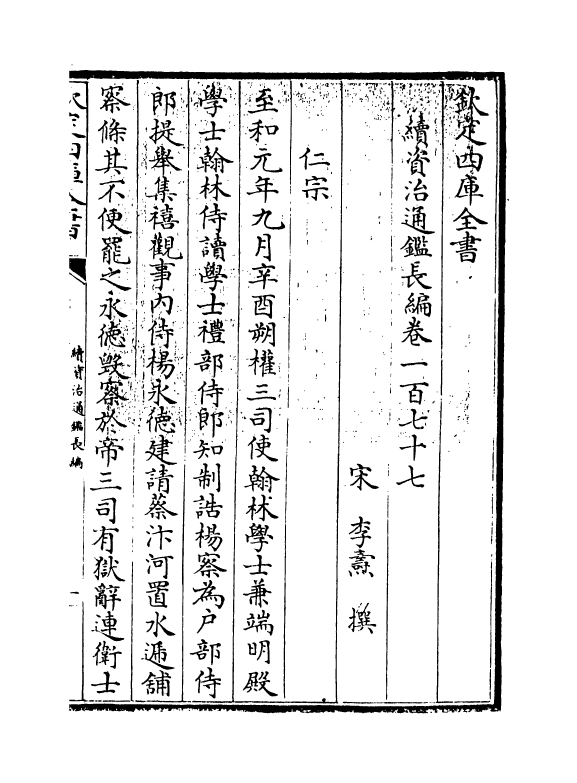 欽定四庫全書
續資治通鑑長編卷一百七十七
宋 李燾 撰
仁宗
至和元年九月辛酉朔權三司使翰林學士兼端明殿
學士翰林侍讀學士禮部侍郎知制誥楊察為户部侍
郎提舉集禧觀事内侍楊永德建請蔡汴河置水遞舖
察條其不便罷之永德毁察於帝三司有獄辭連衛士
欽定四庫全書
續資治通鑑長編
一